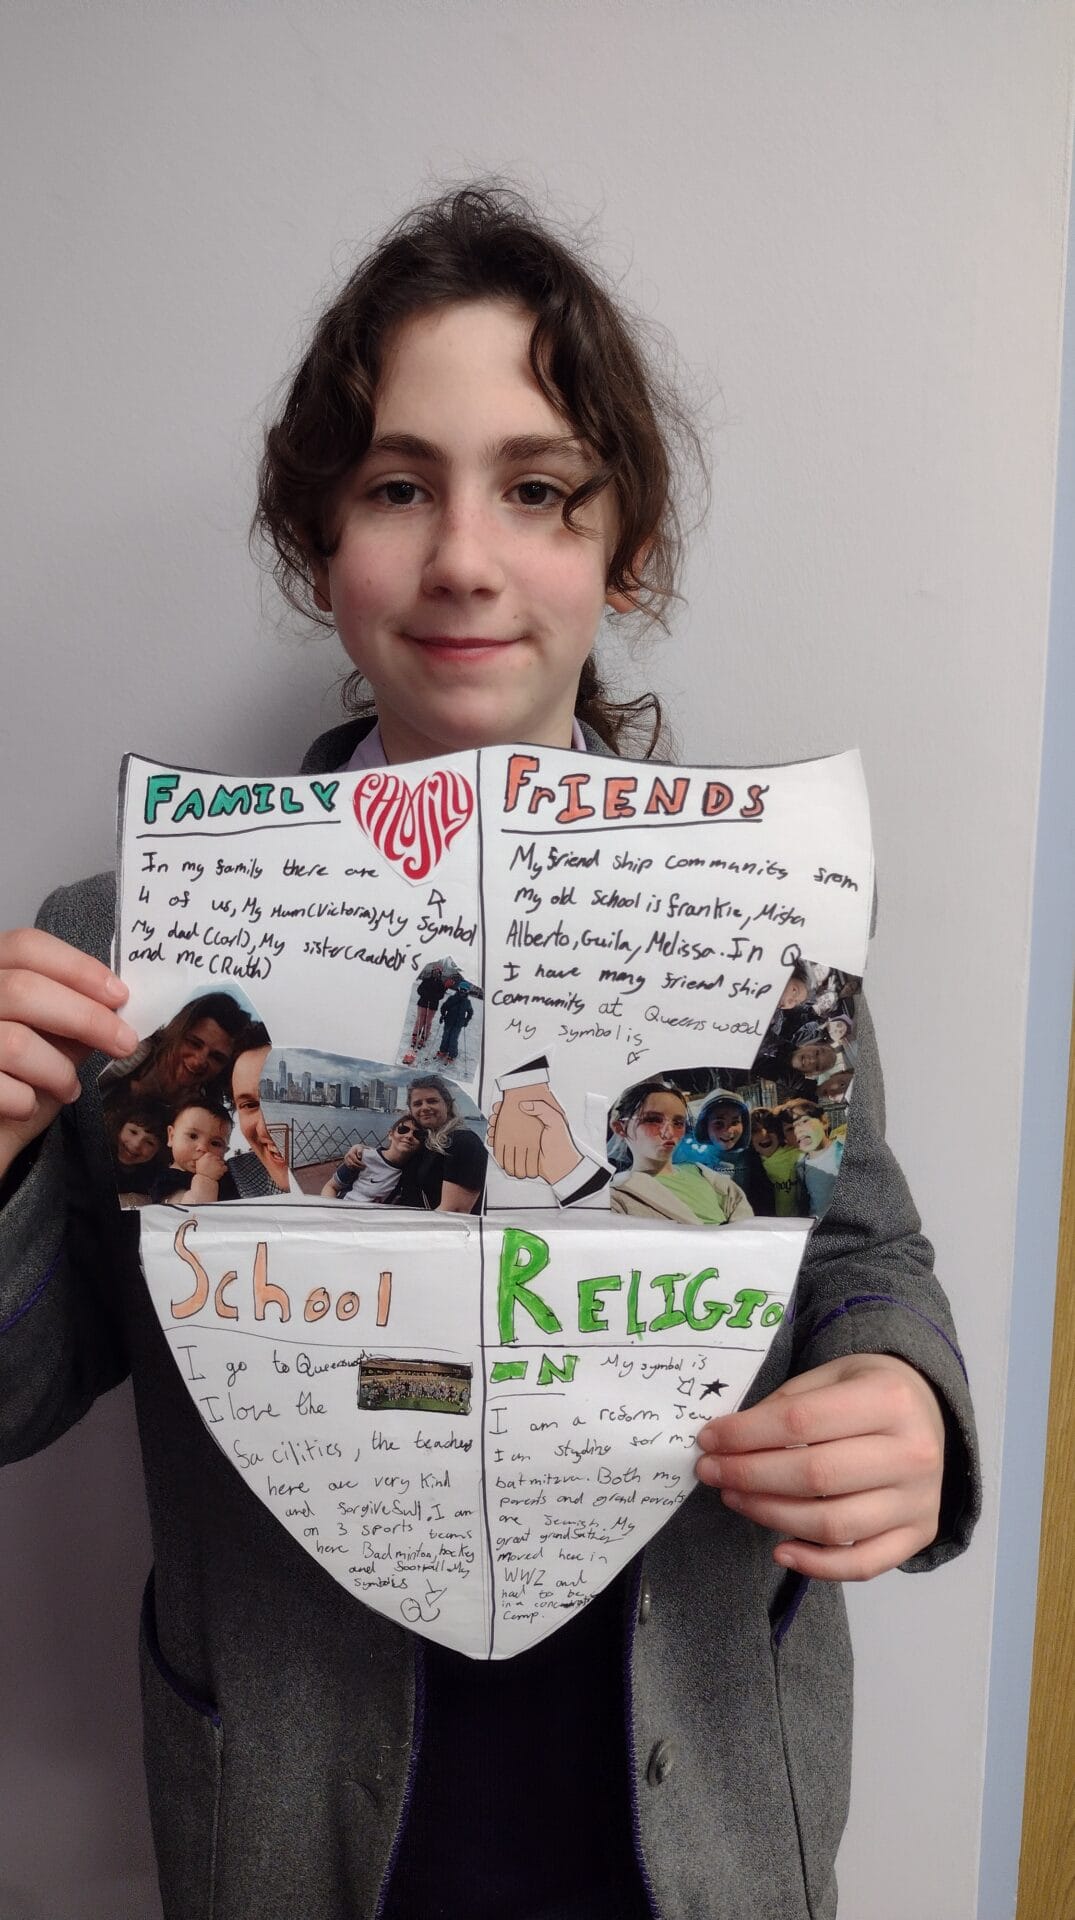 FAMILY
FAMILY
In my family there are
4 of us, My Mum(Victoria), My symbol
My dad(Carl), My sister(Rachel) is
and me (Ruth)
FrIENDS
My friend ship community from
my old school is frankie, Misha
Alberto, Guila, Melissa. In Q
I have many friend ship
community at Queenswood
My symbol is
School
I go to Queenswood
I love the
facilities, the teachers
here are very kind
and forgivefull. I am
on 3 sports teams
here Badminton, hockey
and football. My
symbol is
Q
RELIGIO
-N My symbol is
I am a reform Jew
I am studing for my
batmitzva. Both my
parents and grand parents
are Jewish. My
great grandfather
moved here in
WW2 and
had to be
in a concentration
Camp.